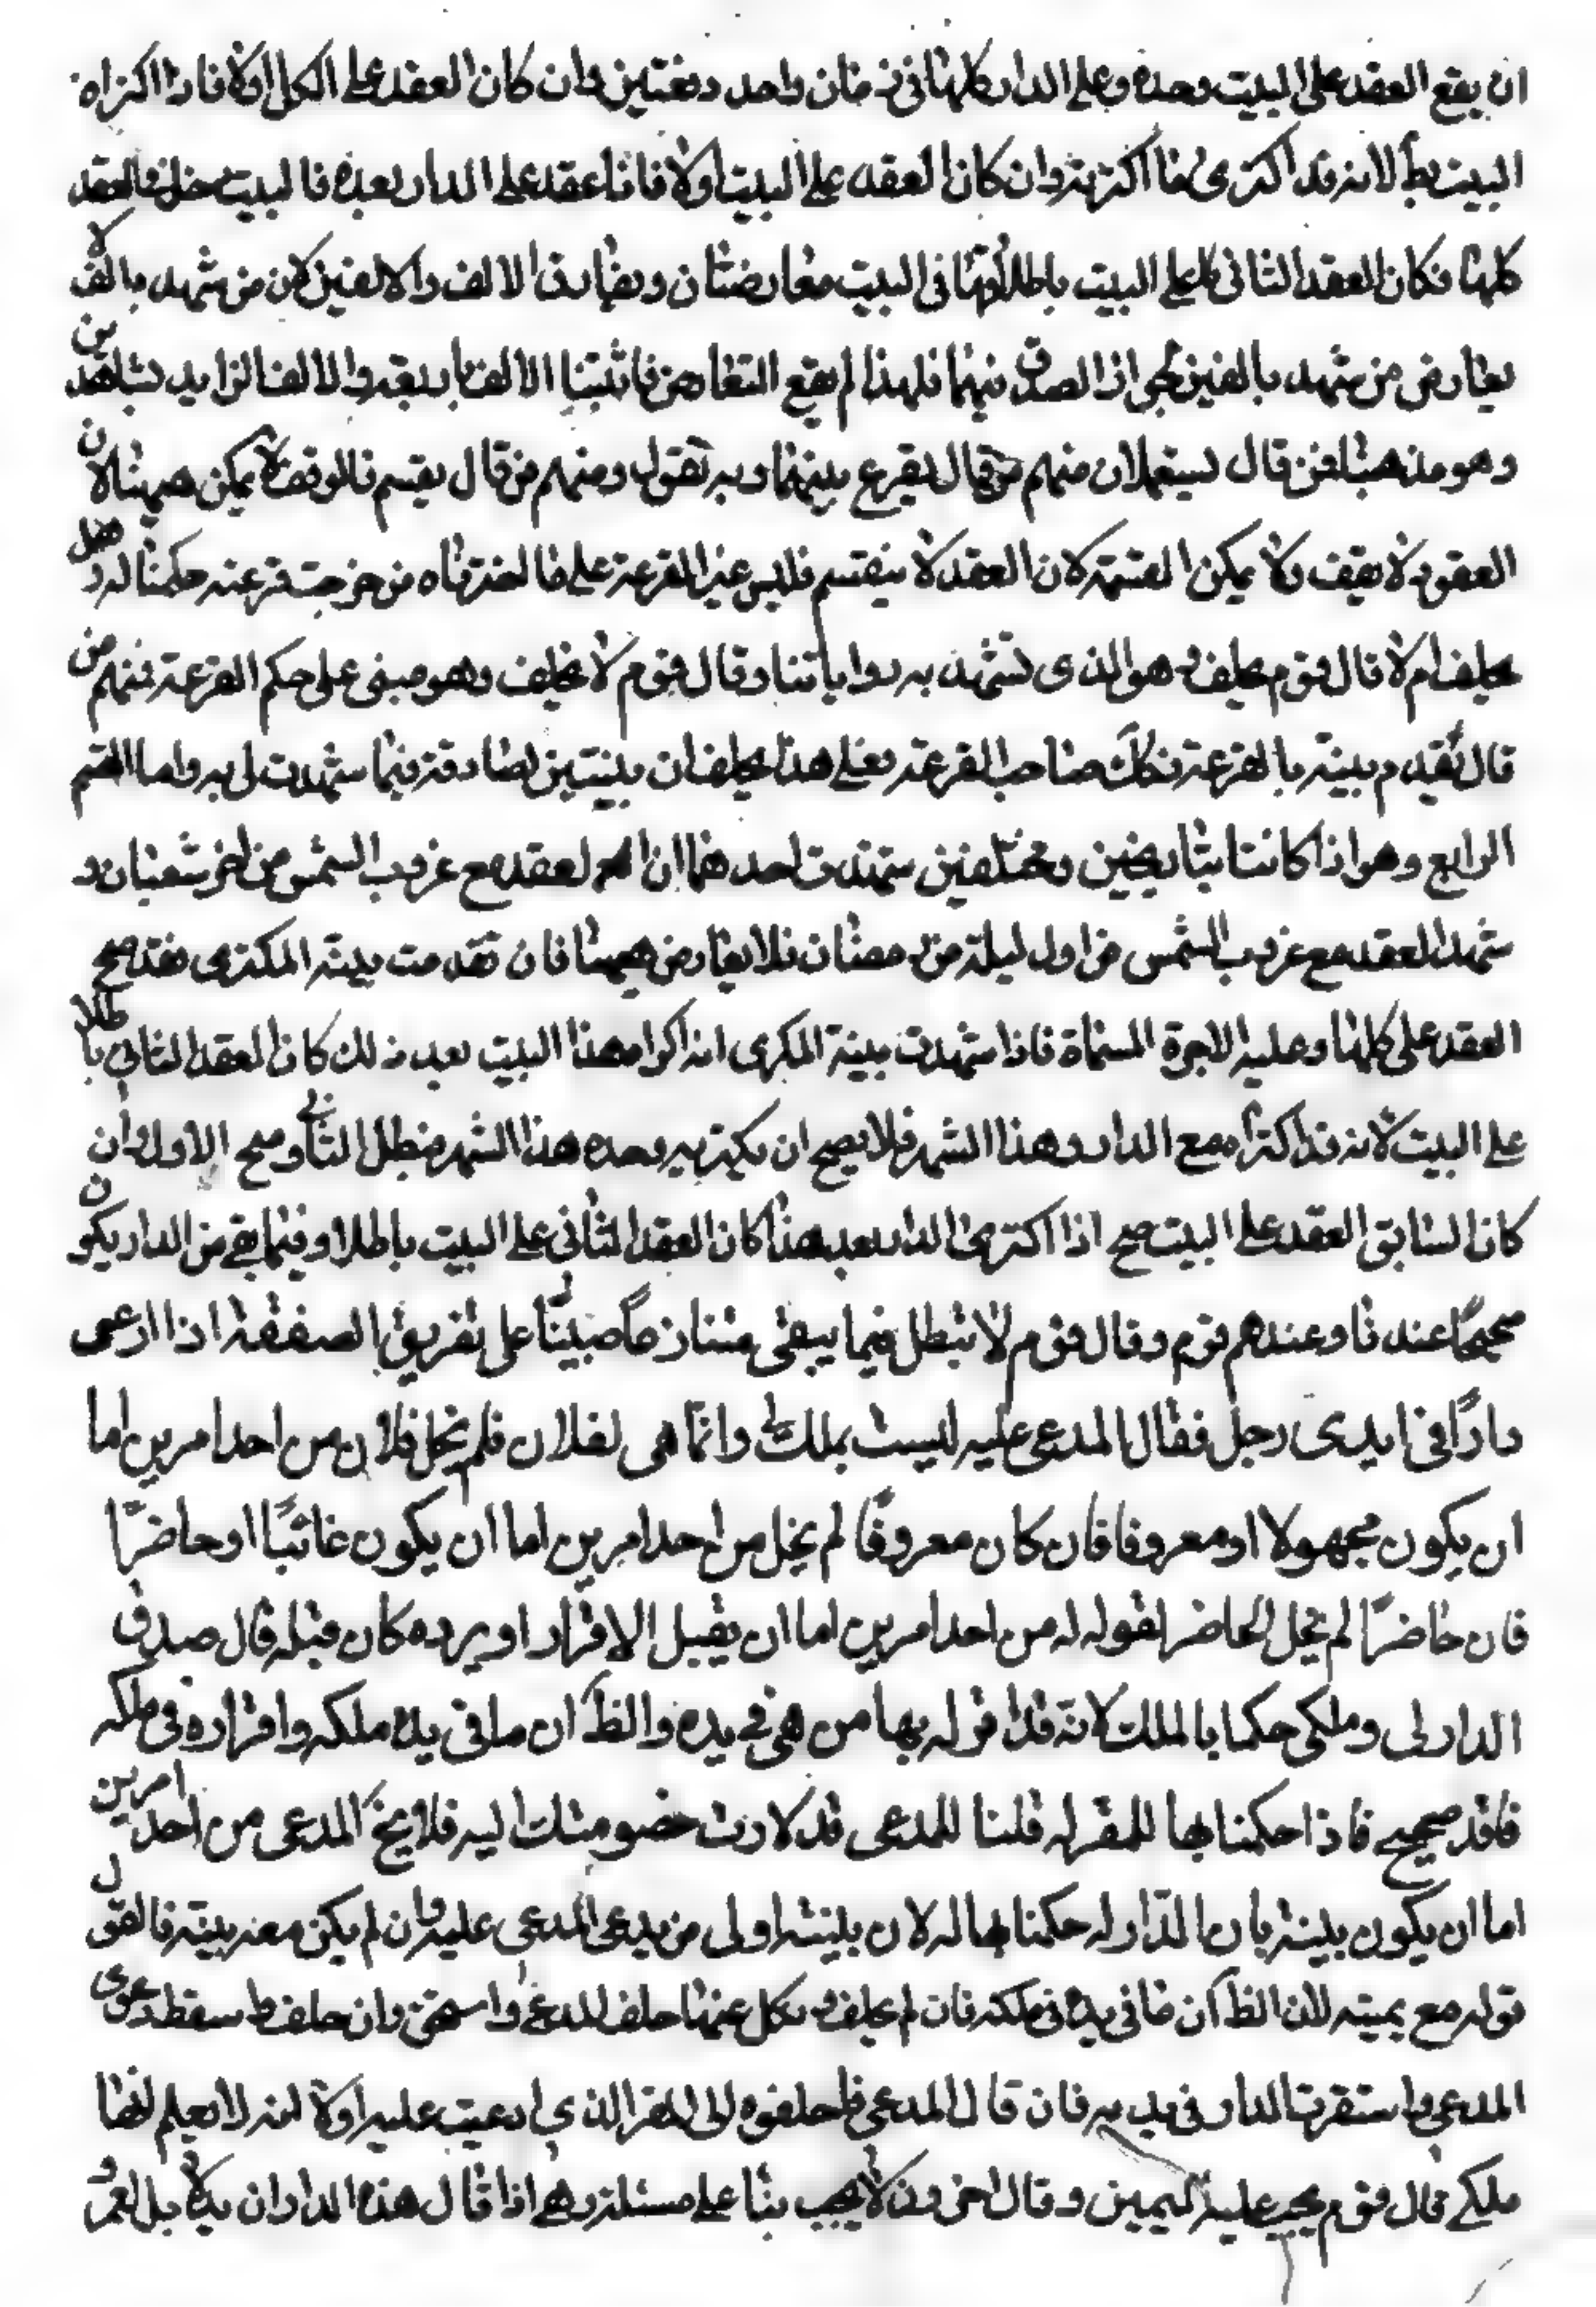 ان يقع العقد على البيت وحده وعلى الدار كلها في زمان واحد دفعتين وان كان العقد على الكل اولا فاذا اكتراه
البيت بطل لانه قد اكترى ما اكترته وان كان العقد على البيت اولا فاذا عقد على الدار بعده فالبيت دخل في العقد
كلها فكان العقد الثاني على البيت باطلا وانها في البيت معارضتان وتعارف الالف والالفين لان من شهد بالف لا
يعارض من شهد بالفين فلهذا لم يقع التعارض فاثبتنا الالف ببينته والالف الزايد بشاهدين
وهو مذهبنا فمن قال يستعملان منهم من قال يقرع بينهما وبه نقول ومنهم من قال يقسم فالوقف لا يمكن ههنا لان
العقود لا يقف ولا يمكن القسمة لان العقد لا ينقسم فليس غير القرعة على ما اخترناه من خرجت قرعته حكمنا له وهل
يحلف ام لا قال قوم يحلف وهو الذي تشهد به رواياتنا وقال قوم لا يحلف وهو مبنى على حكم القرعة فمنهم من
قال تقدم بينته بالقرعة فعلى هذا يحلف ان بينتي صادقة فيما شهدت لي به واما القسم
الرابع وهو اذا كانتا بتاريخين ومختلفين شهدت احدهما ان العقد مع غروب الشمس من اخر شعبان و
شهد العقد مع غروب الشمس من اول ليلة من رمضان فلا يعارض ههنا فان تقدمت بينة المكترى فقد صح
العقد على كلها وعليه الاجرة المسماة فاذا شهدت بينة المكرى انه اكراه هذا البيت بعد ذلك كان العقد الثاني باطلا
على البيت لانه قد اكتراه مع الدار وهذا الشهر فلا يصح ان يكتريه وحده هذا الشهر فبطل الثاني وصح الاول وان
كان السابق العقد على البيت صح اذا اكترى الدار بعد هذا كان العقد الثاني على البيت باطلا وفيما بقى من الدار يكون
صحيحًا عندنا وعندهم قوم وقال قوم لا تبطل فيما يبقى على تفريق الصفقة اذا ادعى
دارًا في ايدى رجل فقال المدعى عليه ليست بملك لي وانما هي لفلان فلم يخل فلان من احد امرين اما
ان يكون مجهولا او معروفا فان كان معروفًا لم يخل من احد امرين اما ان يكون غائبًا او حاضرًا
فان حاضرًا لم يخل الحاضر لقوله له من احد امرين اما ان يقبل الاقرار او يرده كان قبله قال صدق
الدار لى وملكى حكما بالملك لانه قد اقر له بها من هي في يده والظ ان ما في يده ملكه واقراره في ملكه
فاقد صحيح فاذا حكمنا بها للمقر له قلنا للمدعى قد لارت خصومتك اليه فلا يخ المدعى من احد امرين
اما ان يكون بينة بان الدار له حكمنا بها له لان بينته اولى من يد المدعى عليه وان لم يكن معه بينة فالقول
قوله مع يمينه لان الظ ان ما في يده في ملكه فان لم يحلف ونكل عنها حلف المدعى واستحق وان حلف سقط دعوى
المدعى واستقرت الدار في يديه فان قال المدعى فاحلفوه لى المقر الذي ادعيت عليه اولا انه لا يعلم انها
ملكي قال قوم يجب عليه اليمين وقال اخرون لا يجب بنا على مسئلة وهي اذا قال هذه الدار لزيد لا بل لعمرو